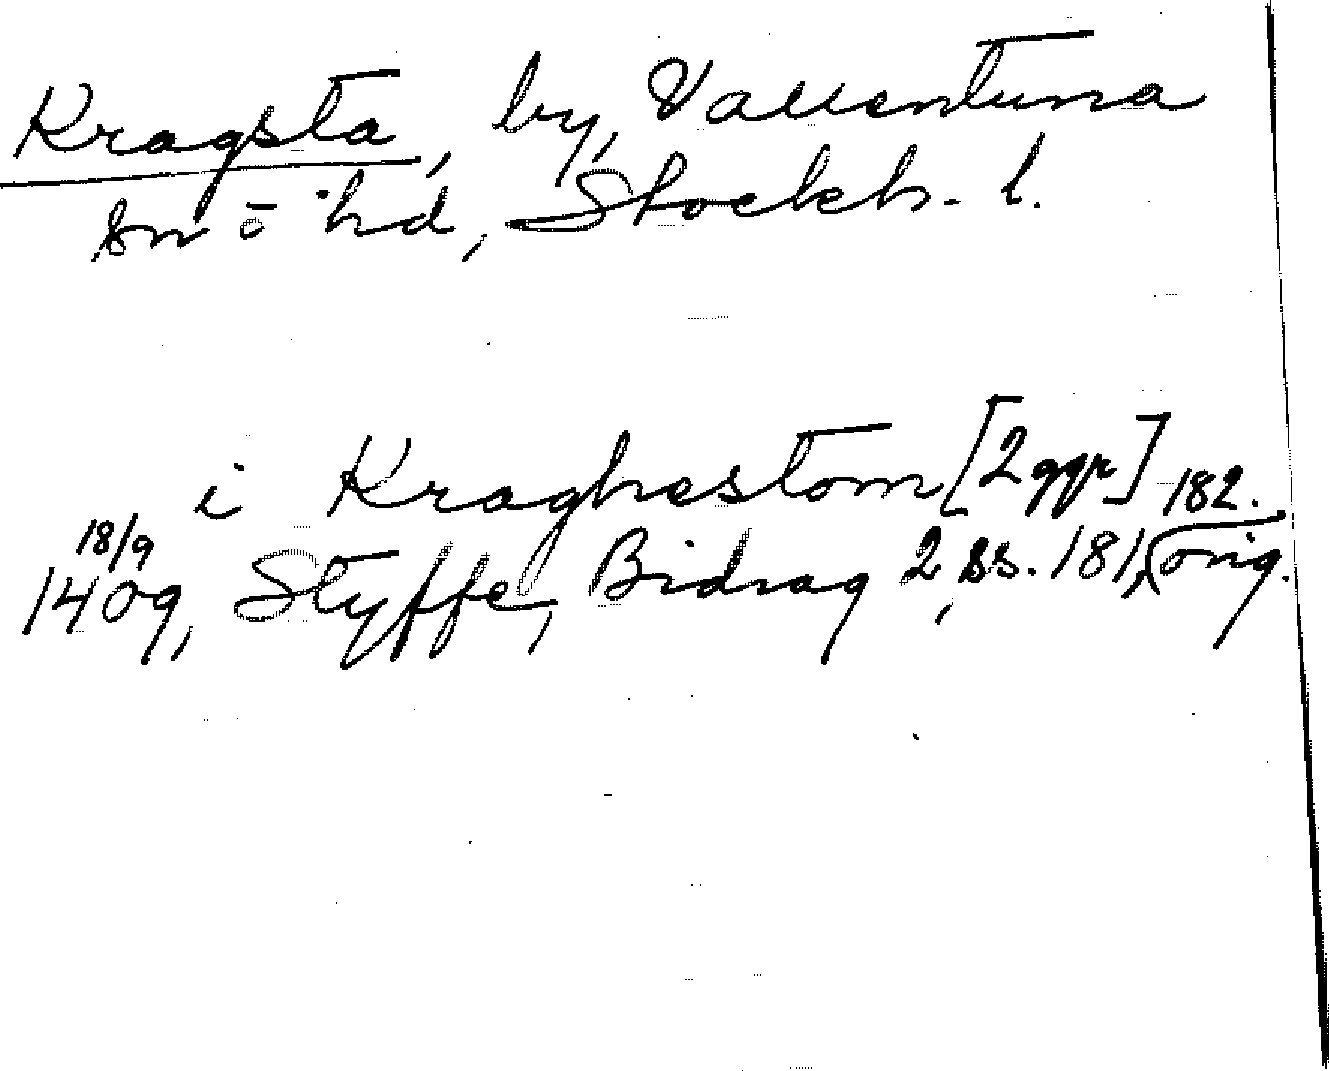 Kragsta, by, Vallentuna
sn o hd, Stockh. l.
i Kraghestom [2 ggr]
18/9 1409, Styffe, Bidrag 2, ss. 181, 182. orig.